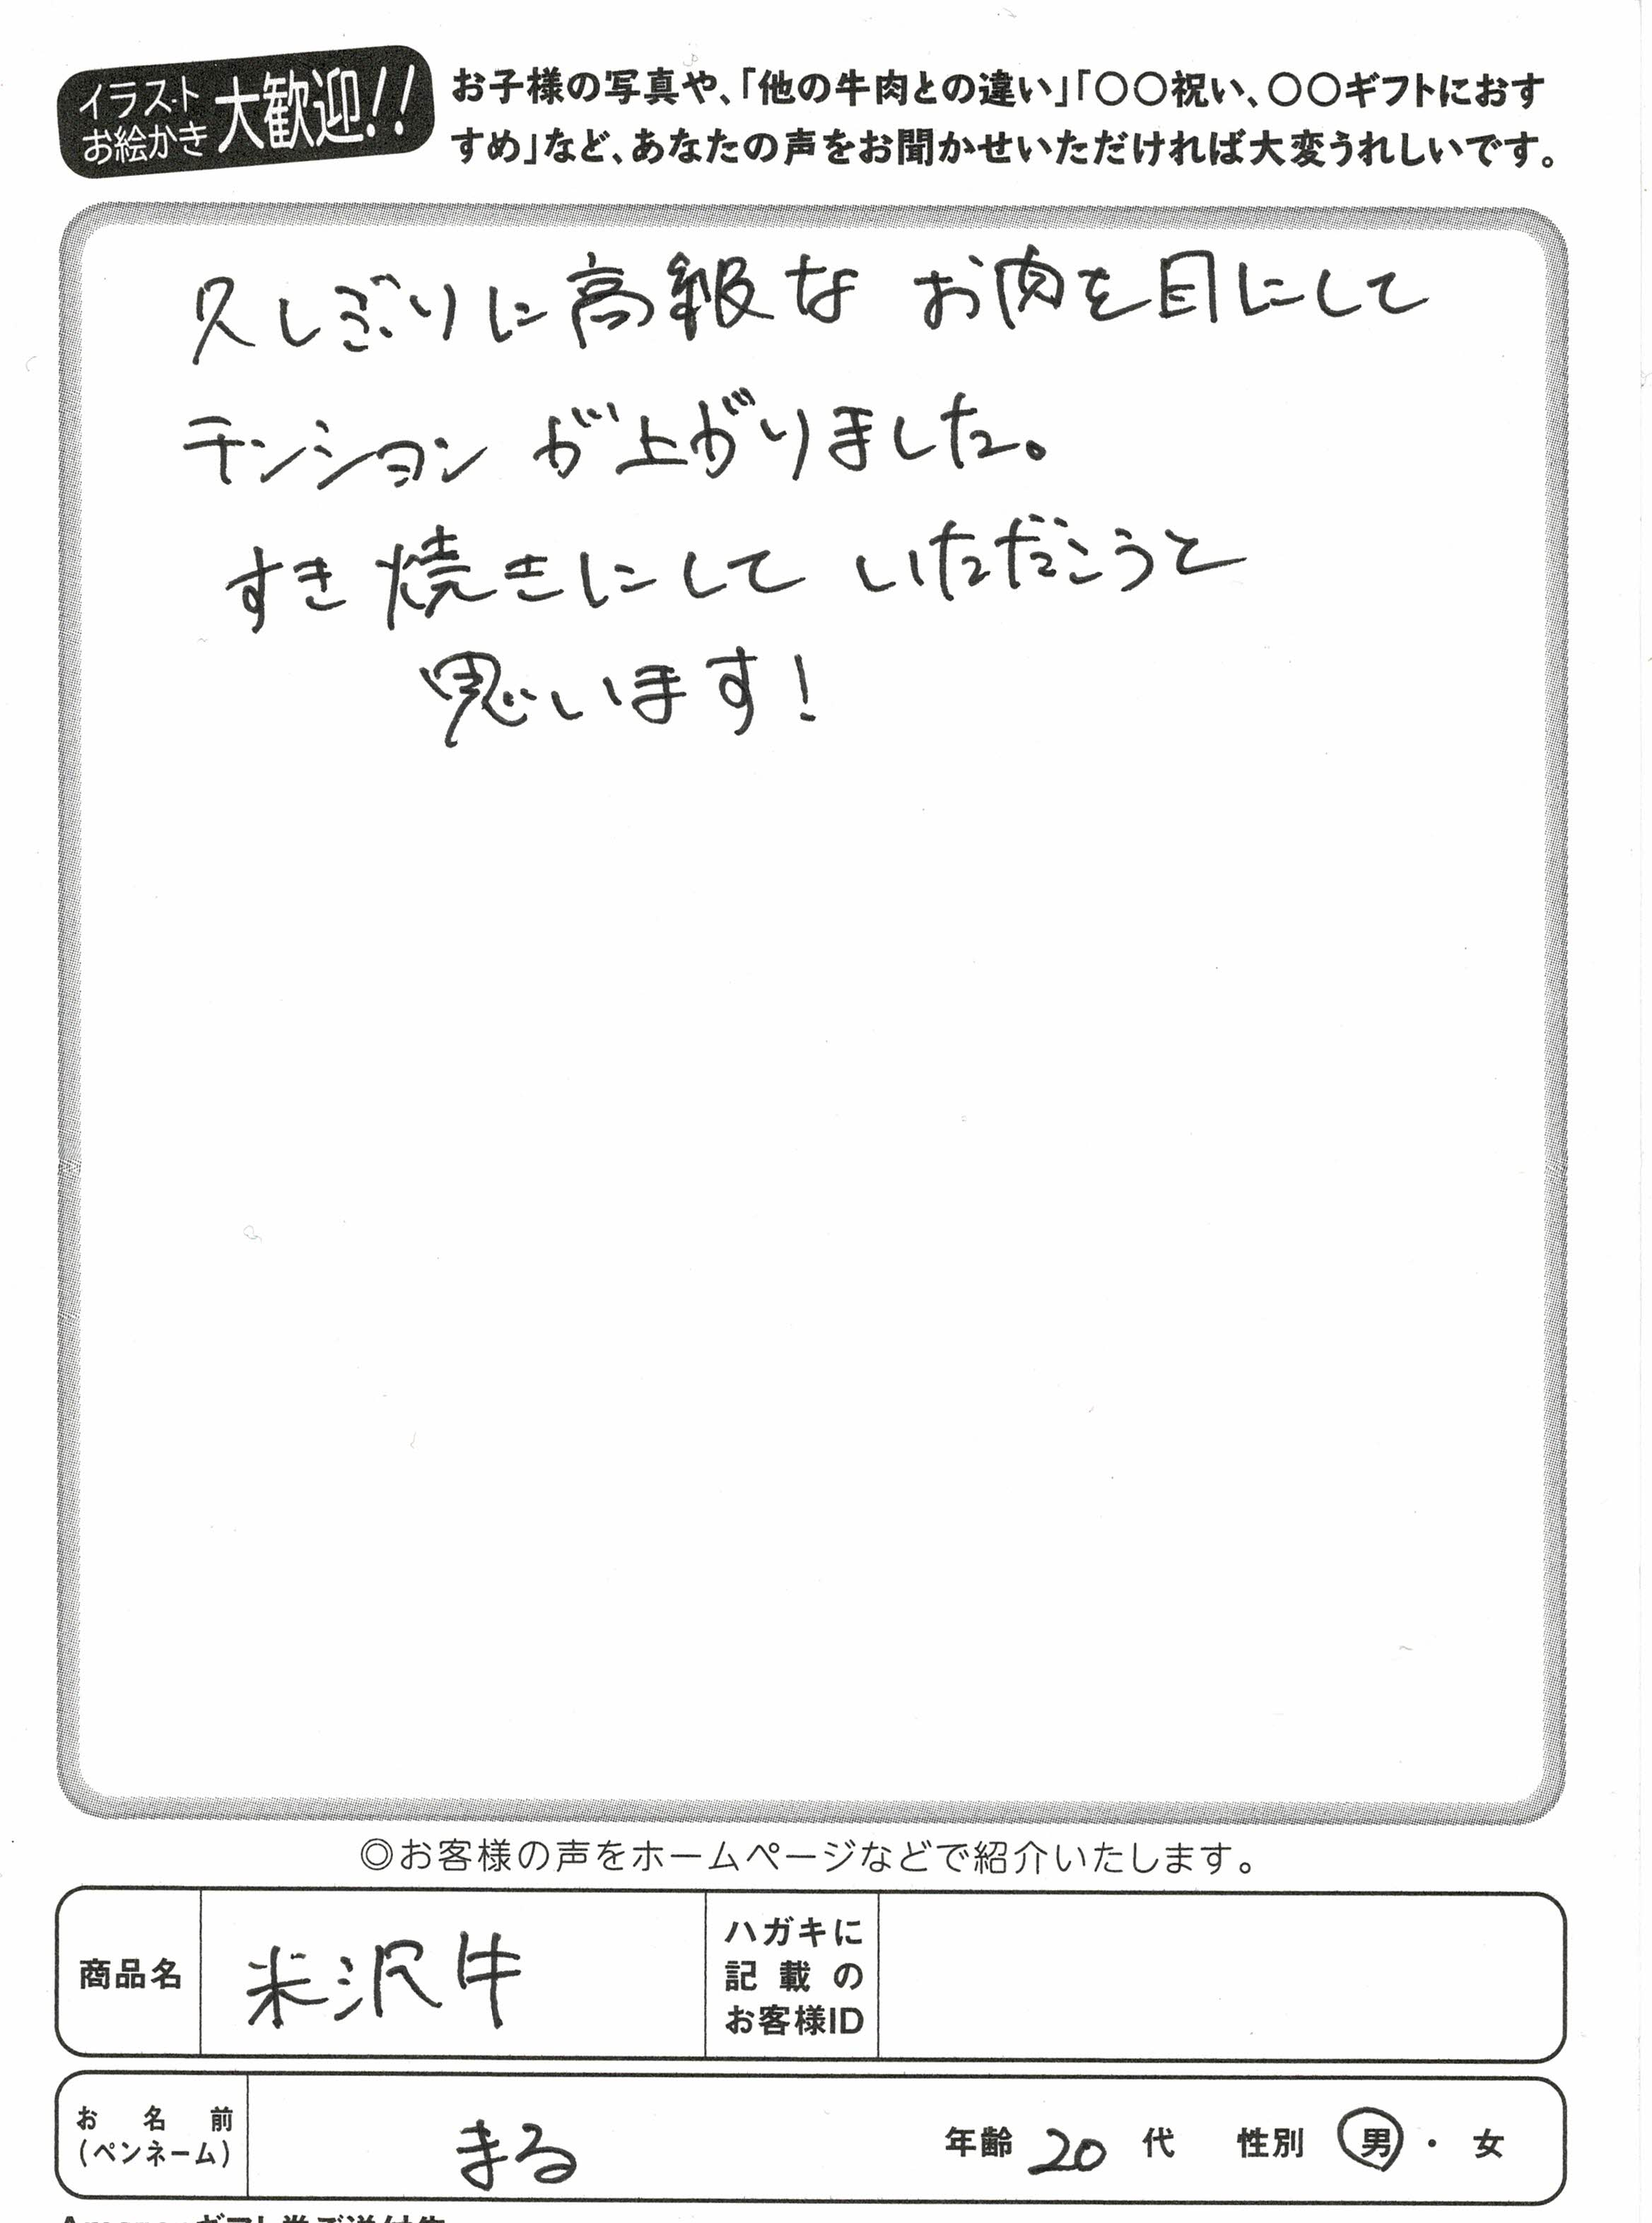 イラスト
お絵かき
大歓迎!!
お子様の写真や、「他の牛肉との違い」「〇〇祝い、〇〇ギフトにおす
すめ」など、あなたの声をお聞かせいただければ大変うれしいです。
久しぶりに高級な お肉を目にして
テンション が上がりました。
すき焼きにして いただこうと
思います!
◎お客様の声をホームページなどで紹介いたします。
商品名 米沢牛
ハガキに
記載の
お客様ID
お名前
(ペンネーム)
まる 年齢 20 代 性別 男・女